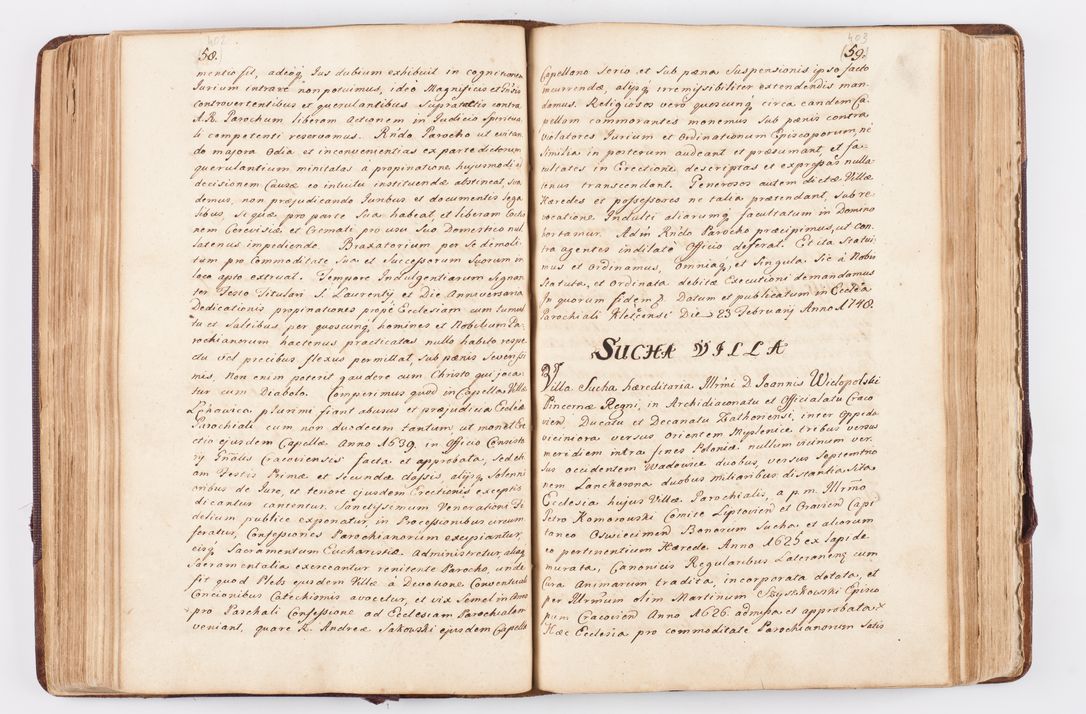 402
58.
mentio sit, adeoq Jus dubium exhibuit in cognitionem
Jurium intrare non potuimus, ideo Magnificis et Gnsis
controvertentibus et querulantibus Supratactis contra
A. R. Parochum liberam Actionem in Judicio Spiritua
li competenti reservamus. Rndo Parocho ut evitan
do majora Odia et inconvenientias ex parte dictorum
querulantium minitatas à propinatione hujusmodi ad
decisionem Causæ eo intuitu instituendæ abstineat, sua
demus, non præjudicando Juribus et documentis lega
libus, si quæ pro parte sua habeat, et liberam Coctio
nem Cerevisiæ et Cremati pro usu suo Domestico nul
latenus impediendo. Braxatorium per se demoli
tum pro Commoditate sua et Successorum Suorum in
loco apto extruat. Tempore Indulgentiarum Signan
ter Festo Titulari S. Laurentij et Die Anniversaria
Dedicationis propinationes propè Ecclesiam cum tumul
tu et saltibus per quoscunq homines et Nobilium Pa
rochianorum hactenus practicatas nullo habito respe
ctu vict precibus flexus permittat, sub pænis severissi
mis, Non enim poterit gaudere cum Christo qui joca
tur cum Diabolo. Comperimus quod in Capella Villæ
Lchawica plurimi fiant abusus et præjudicia Eccliæ
Parochiali cum non duodecim tantum ut monet Ere
ctio ejusdem Capellæ Anno 1639. in Officio Consisto
rij Gnalis Cracoviensis facta et approbata, sed eti
am Festis Primæ et Secundæ classis, alijsq Solenni
oribus de Jure, et tenore ejusdem Erectionis exceptis
dicantur cantentur, Sanctissimum Venerationi Fi
delium publice exponatur, in Processionibus circum
feratur, Confessiones Parochianorum excipiantur,
eisq Sacramentum Eucharistiæ administretur, aliaq
Sacramentalia exerceantur renitente Parocho, unde
fit quod Plebs ejusdem Villæ à Devotione Conventuali
Concionibus Catechismis avocetur, et vix semel in Anno
pro Paschali Confessione ad Ecclesiam Parochialem
veniant, quare R. Andreæ Sakowski ejusdem Capellæ
403
59.
Capellano serio et sub pæna Suspensionis ipso facto
incurrendæ, alijsq irremissibiliter extendendis man
damus. Religiosos vero quoscunq circa eandem Ca
pellam commorantes monemus sub pænis contra
violatores Jurium et Ordinationum Episcoporum, ne
similia in posterum audeant et præsumant, et fa
cultates in Erectione descriptas et expressas nulla
tenus transcendant. Generosos autem dictæ Villæ
Hæredes et possessores ne talia prætendant, sub re
vocatione Indulti aliarumq facultatum in Domino
hortamur. Adm Rndo Parocho præcipimus, ut con
tra agentes indilatè Officio deferat. Et ita Statui
mus et Ordinamus, Omniaq et Singula sic à Nobis
Statuta, et Ordinata debitæ Executioni demandamus
In quorum fidem &. Datum et publicatum in Ecclia
Parochiali Kletcensi Die 23 Februarij Anno 1748.
SUCHA VILLA
Villa Sucha hæreditaria Illrmi D. Joannis Wielopolski
Pincernæ Regni, in Archidiaconatu et Officialatu Craco
vien, Ducatu et Decanatu Zathoriensi, inter Oppida
viciniora versus Orientem Myslenice tribus versus
meridiem intra fines Poloniæ nullum vicinum ver
sus occidentem Wadowice duobus, versus septentrio
nem Lanckorona duobus milliaribus distantia sita
Ecclesia hujus Villæ Parochialis, a p. m. Illrmo
Petro Komorowski Comite Liptovien et Oravien Capi
taneo Oswiecimen Bonorum Sucha, et aliorum
eo pertinentium Hærede Anno 1625 ex lapide
murata, Canonicis Regularibus Lateranenq cum
Cura Animarum tradita, incorporata dotata, et
per Illrmum olim Martinum Szyszkowski Episco
pum Cracovien Anno 1626. admissa et approbata
Hæc Ecclesia pro commoditate Parochianorum satis